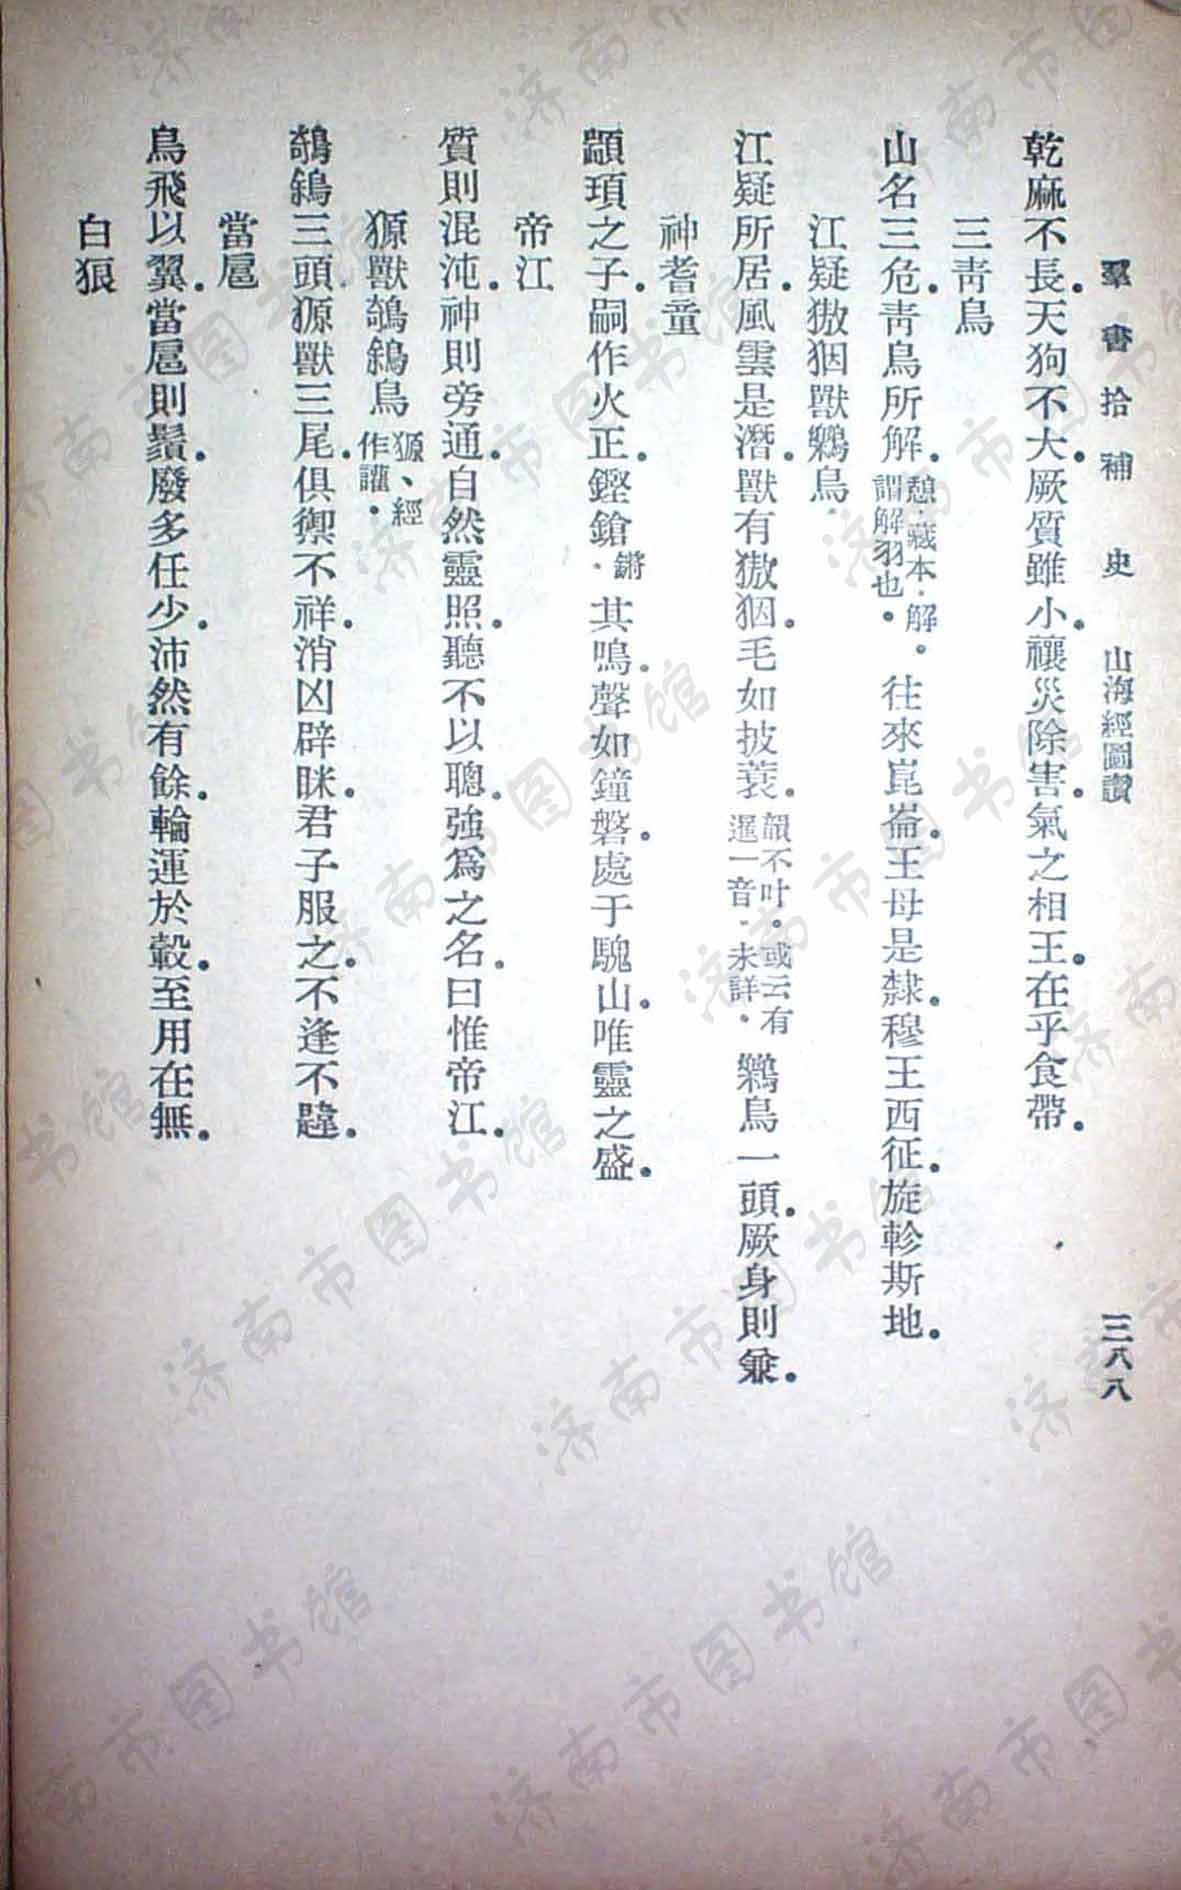 羣書拾補 史 山海經圖讚 三八八
乾麻不長。天狗不大。厥質雖小。禳災除害。氣之相王。在乎食帶。
三靑鳥
山名三危。靑鳥所解。憩、藏本、解。謂解羽也。往來崑崙。王母是隸。穆王西征。旋軫斯地。
江疑獓㹶獸鸈鳥
江疑所居。風雲是潛。獸有獓㹶。毛如披蓑。韻不叶。或云有暹一音、未詳。鸈鳥一頭。厥身則兼。
神耆童
顓頊之子。嗣作火正。鏗鎗鏘、其鳴。聲如鐘磬。處于騩山。唯靈之盛。
帝江
質則混沌。神則旁通。自然靈照。聽不以聰。強爲之名。曰惟帝江。
獂獸鵸鵌鳥獂、經作讙。
鵸鵌三頭。獂獸三尾。俱禦不祥。消凶辟眯。君子服之。不逢不韙。
當扈
鳥飛以翼。當扈則鬚。廢多任少。沛然有餘。輪運於轂。至用在無。
白狼
济南市图书馆